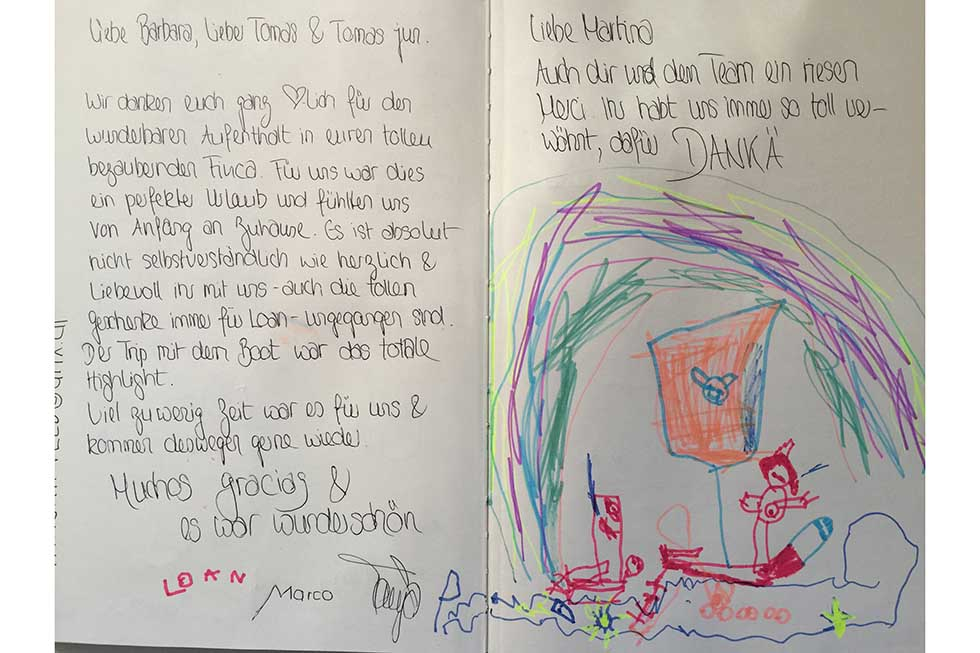 Liebe Barbara, Lieber Tomas & Tomas jun.
Wir danken euch ganz ♡lich für den
wunderbaren Aufenthalt in euren tollen
bezaubernden Finca. Für uns war dies
ein perfekter Urlaub und fühlten uns
von Anfang an Zuhause. Es ist absolut
nicht selbstverständlich wie herzlich &
Liebevoll ihr mit uns - auch die tollen
geschenke immer für Loan - umgegangen sind.
Der Trip mit dem Boot war das totale
Highlight.
Viel zu wenig Zeit war es für uns &
kommen deswegen gerne wieder.
Muchas gracias &
es war wunderschön
LOAN
Marco
Liebe Martina
Auch dir und dem Team ein riesen
Merci. Ihr habt uns immer so toll ver-
wöhnt, dafür DANKÄ